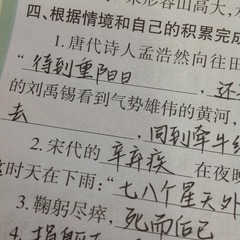 来形容山高大，
四、根据情境和自己的积累完成
1.唐代诗人孟浩然向往田
“待到重阳日，还
的刘禹锡看到气势雄伟的黄河，
去，同到牵牛织
2.宋代的辛弃疾在夜晚
这时天在下雨：“七八个星天外
3.鞠躬尽瘁，死而后已
4.捐躯